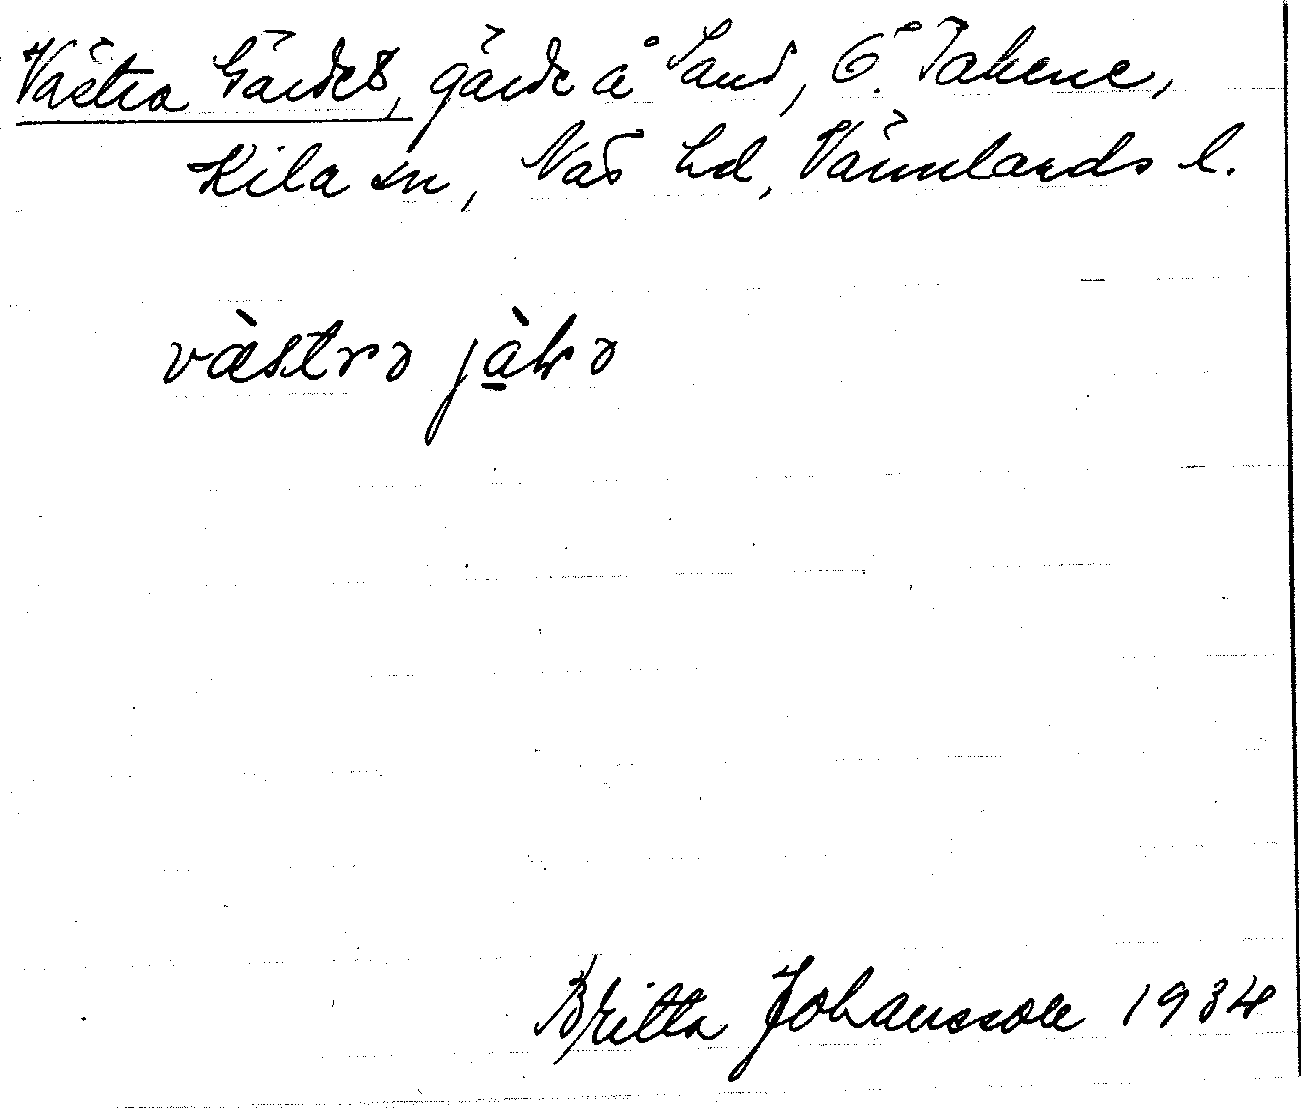 Västra Gärdet, gärde å Sand, Ö. Takene,
Kila sn, Näs hd, Värmlands l.
västrə jäɫə
Britta Johansson 1934